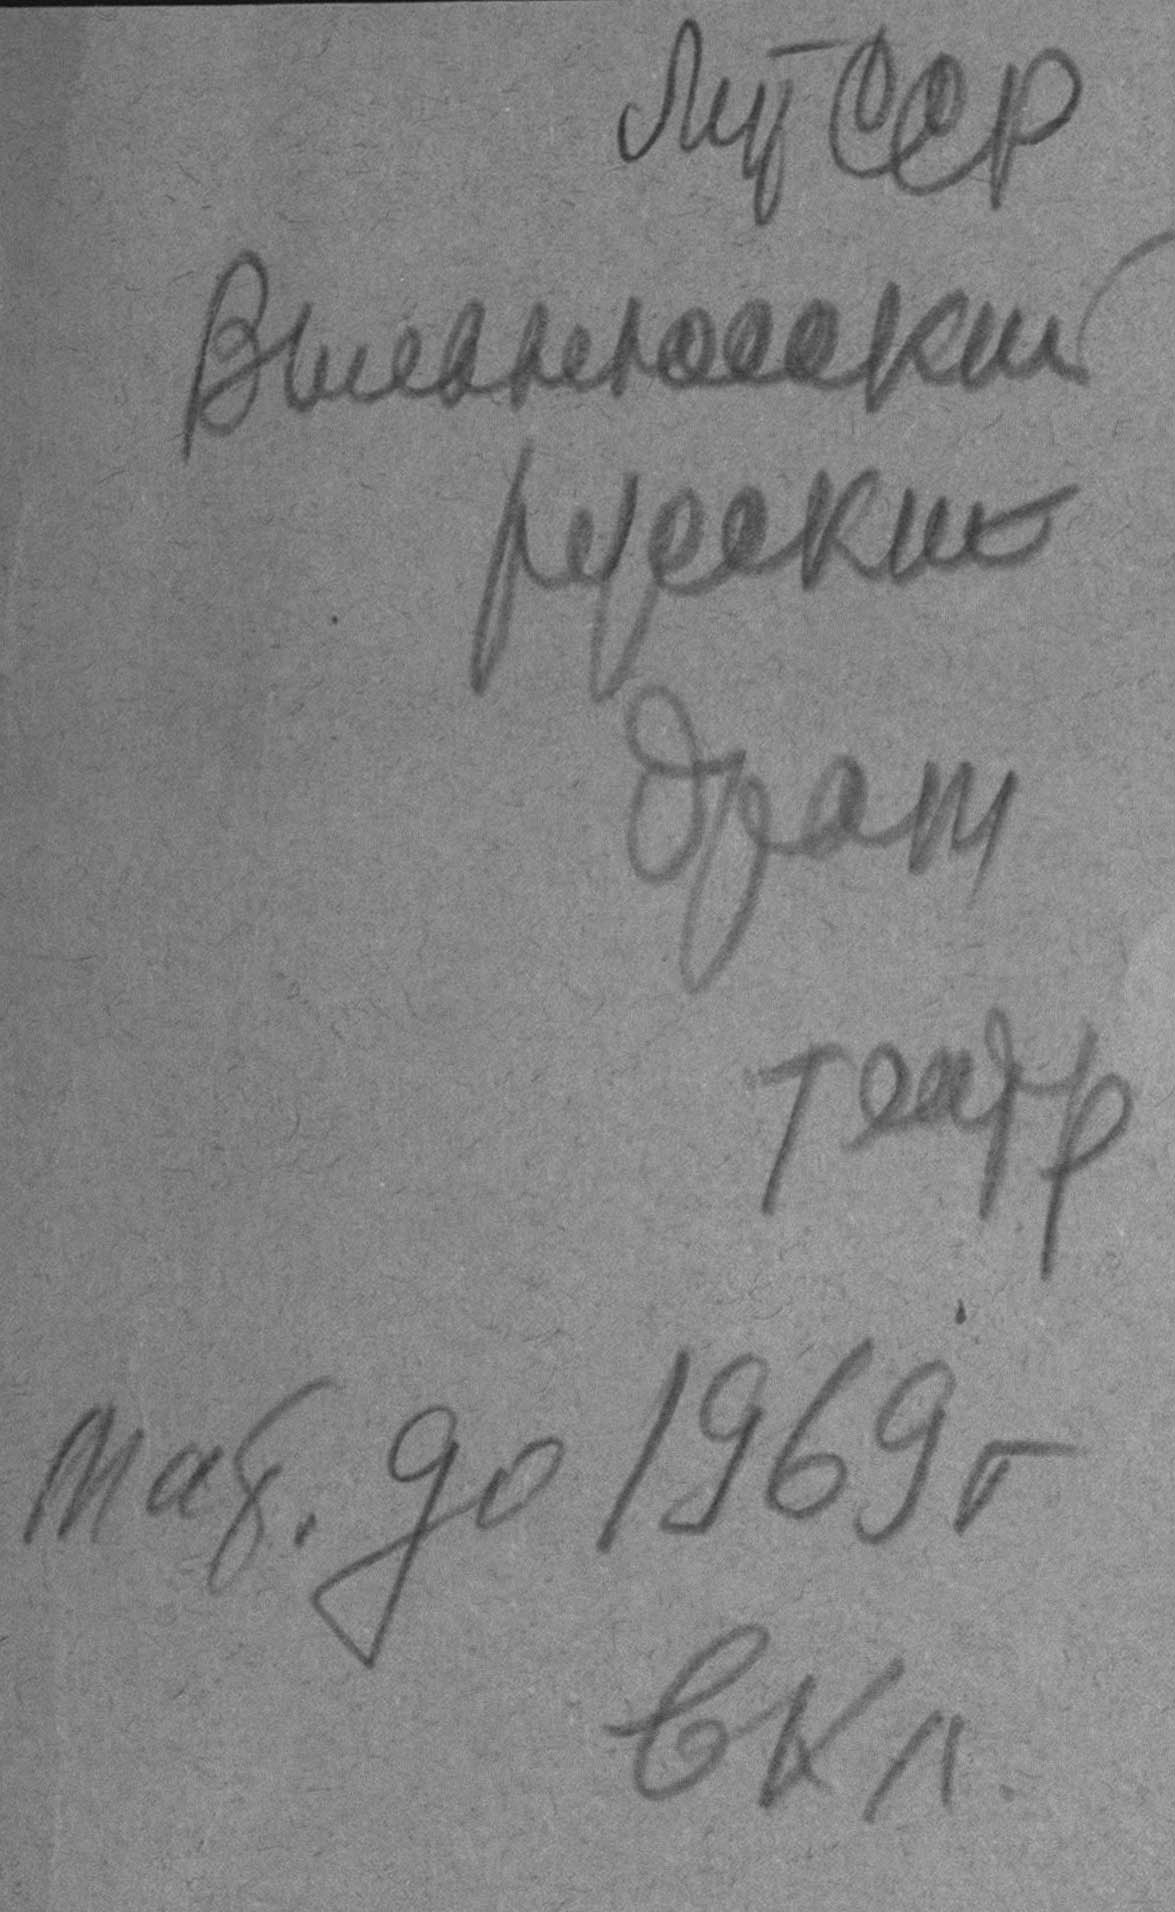 Лит ССР
Вильнюсский
русский
драм
театр
маб. до 1969 г
вкл.